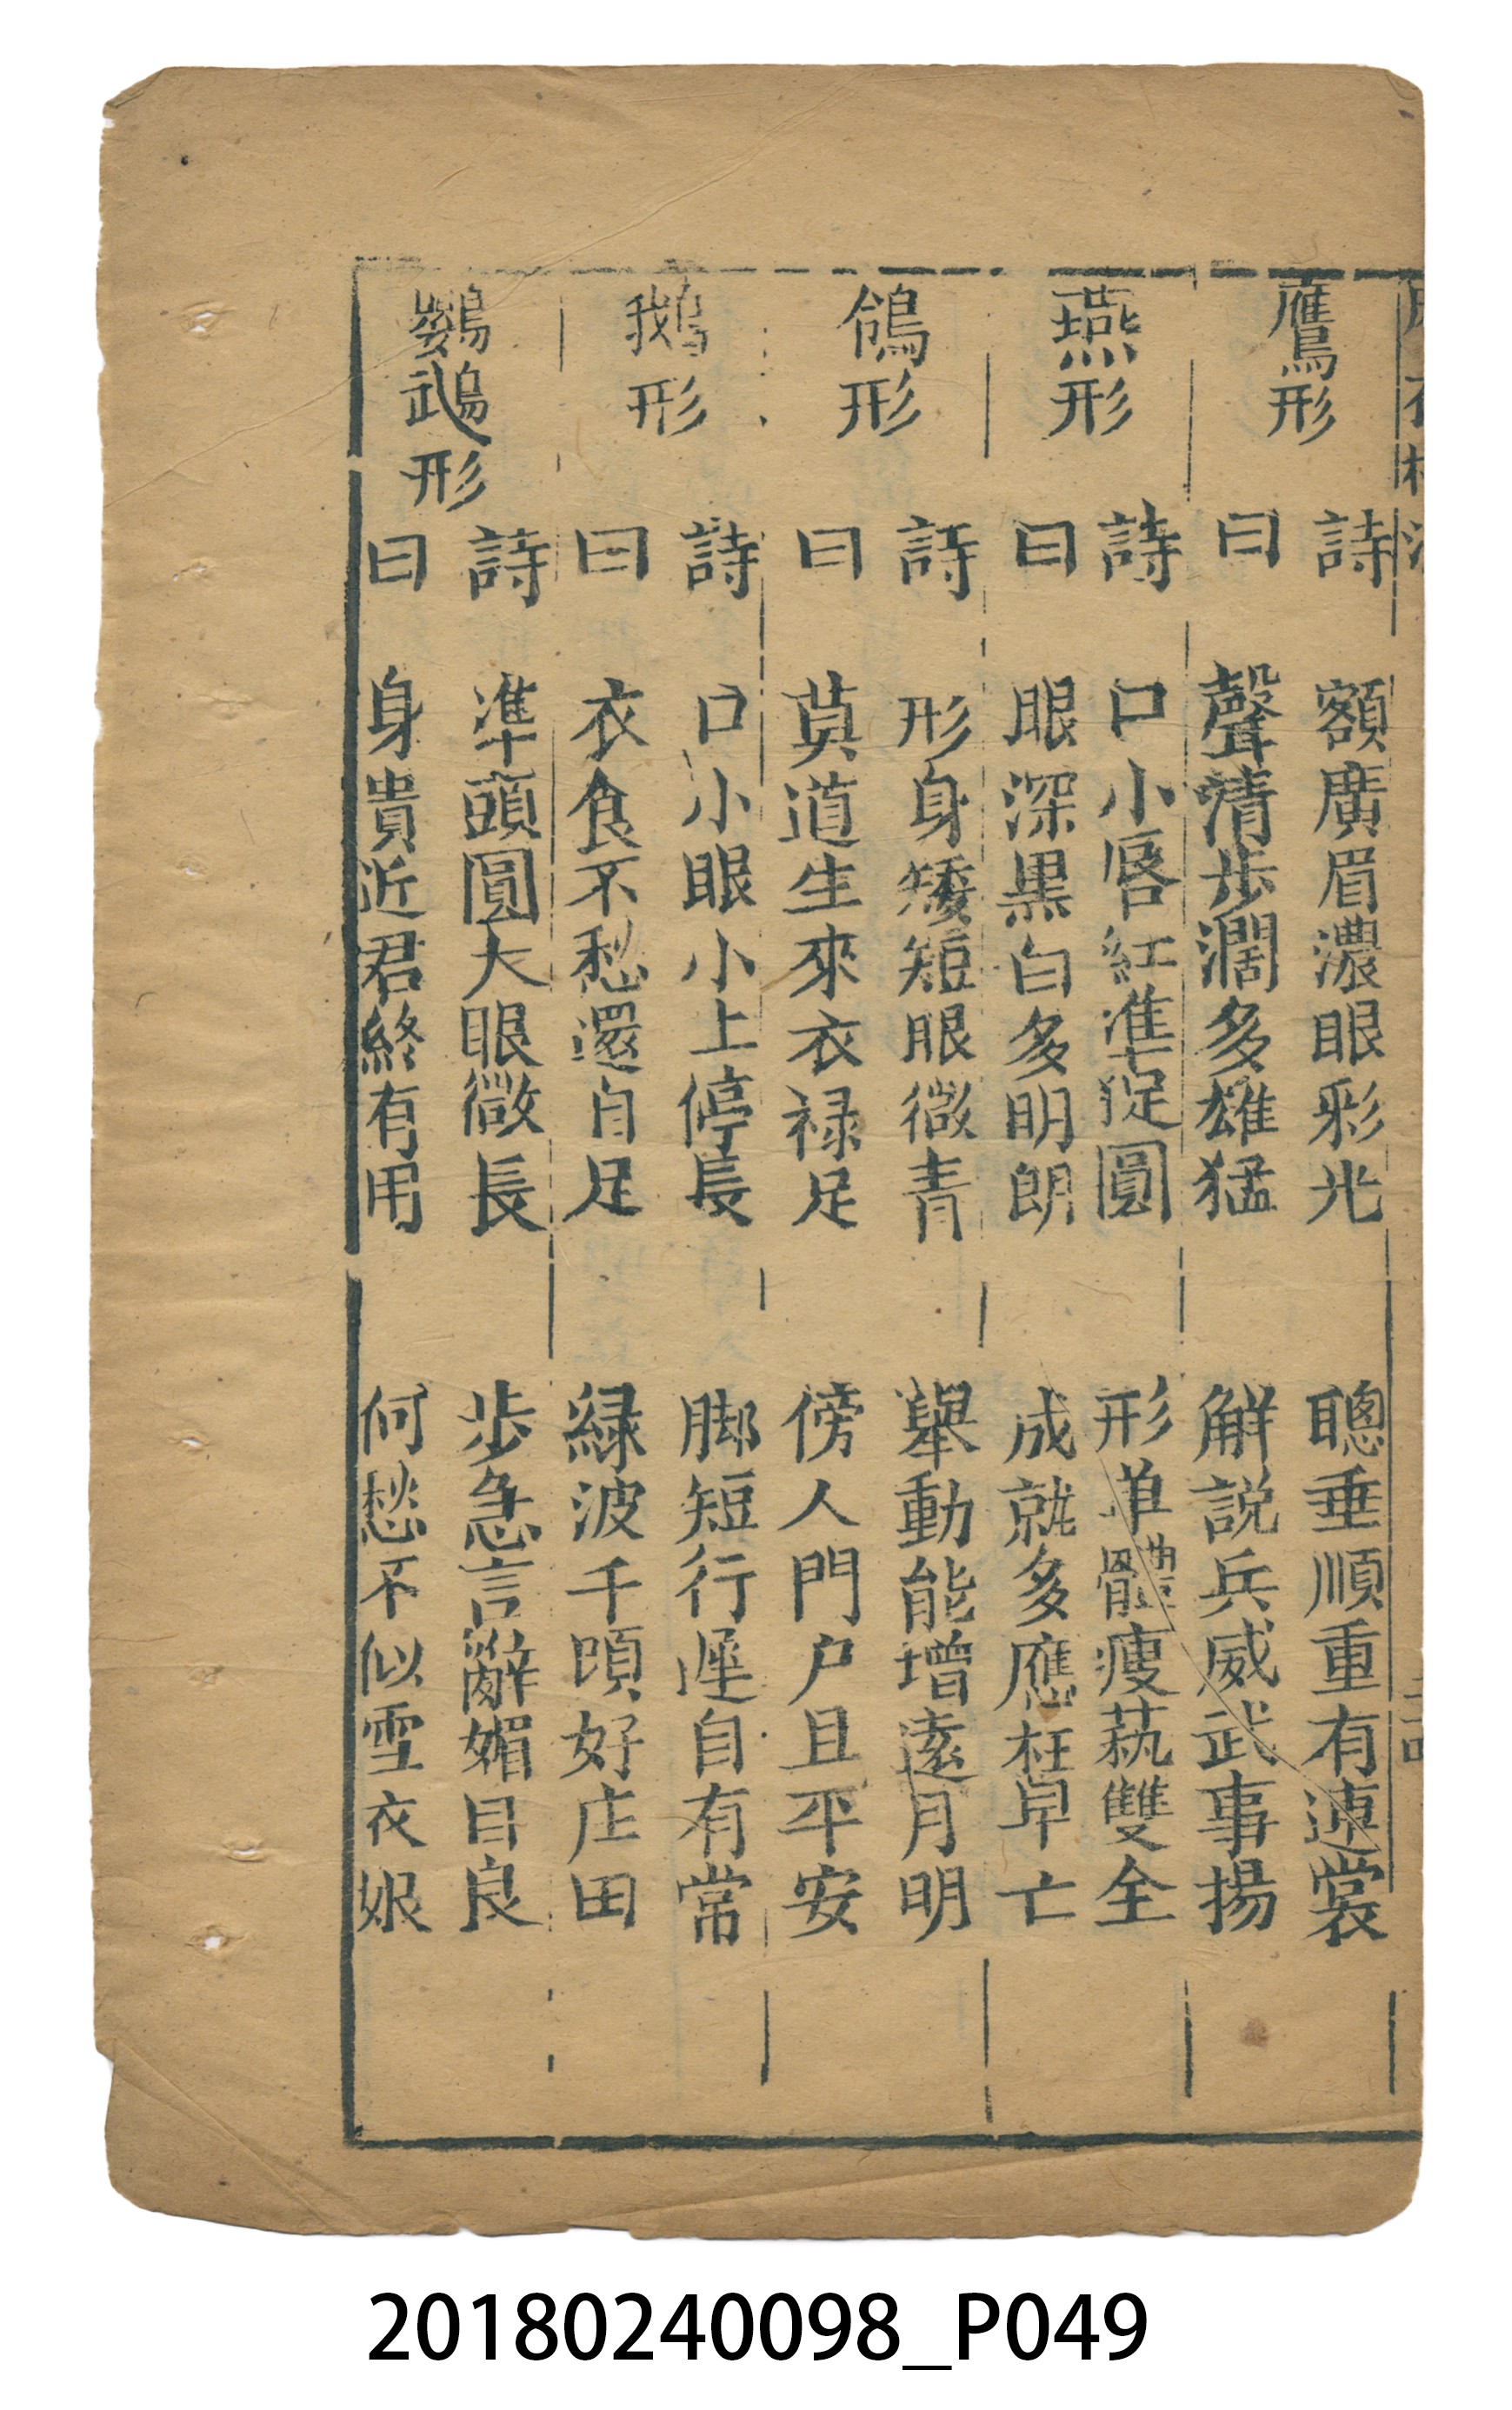 鷹形
詩 額廣眉濃眼彩光 聰垂順重有連裳
曰 聲清步濶多雄猛 觧説兵威武事揚
燕形
詩 口小唇紅準促圓 形単體瘦蓺雙全
曰 眼深黒白多明朗 成就多應枉早亡
鴿形
詩 形身矮短眼微青 舉動能增遠月明
曰 莫道生來衣禄足 傍人門户且平安
鵝形
詩 口小眼小上停長 脚短行遲自有常
曰 衣食不愁還自足 緑波千頃好庄田
鸚鵡形
詩 凖頭圓大眼微長 步急言辭媚目良
曰 身貴近君終有用 何愁不似雪衣娘
20180240098_P049